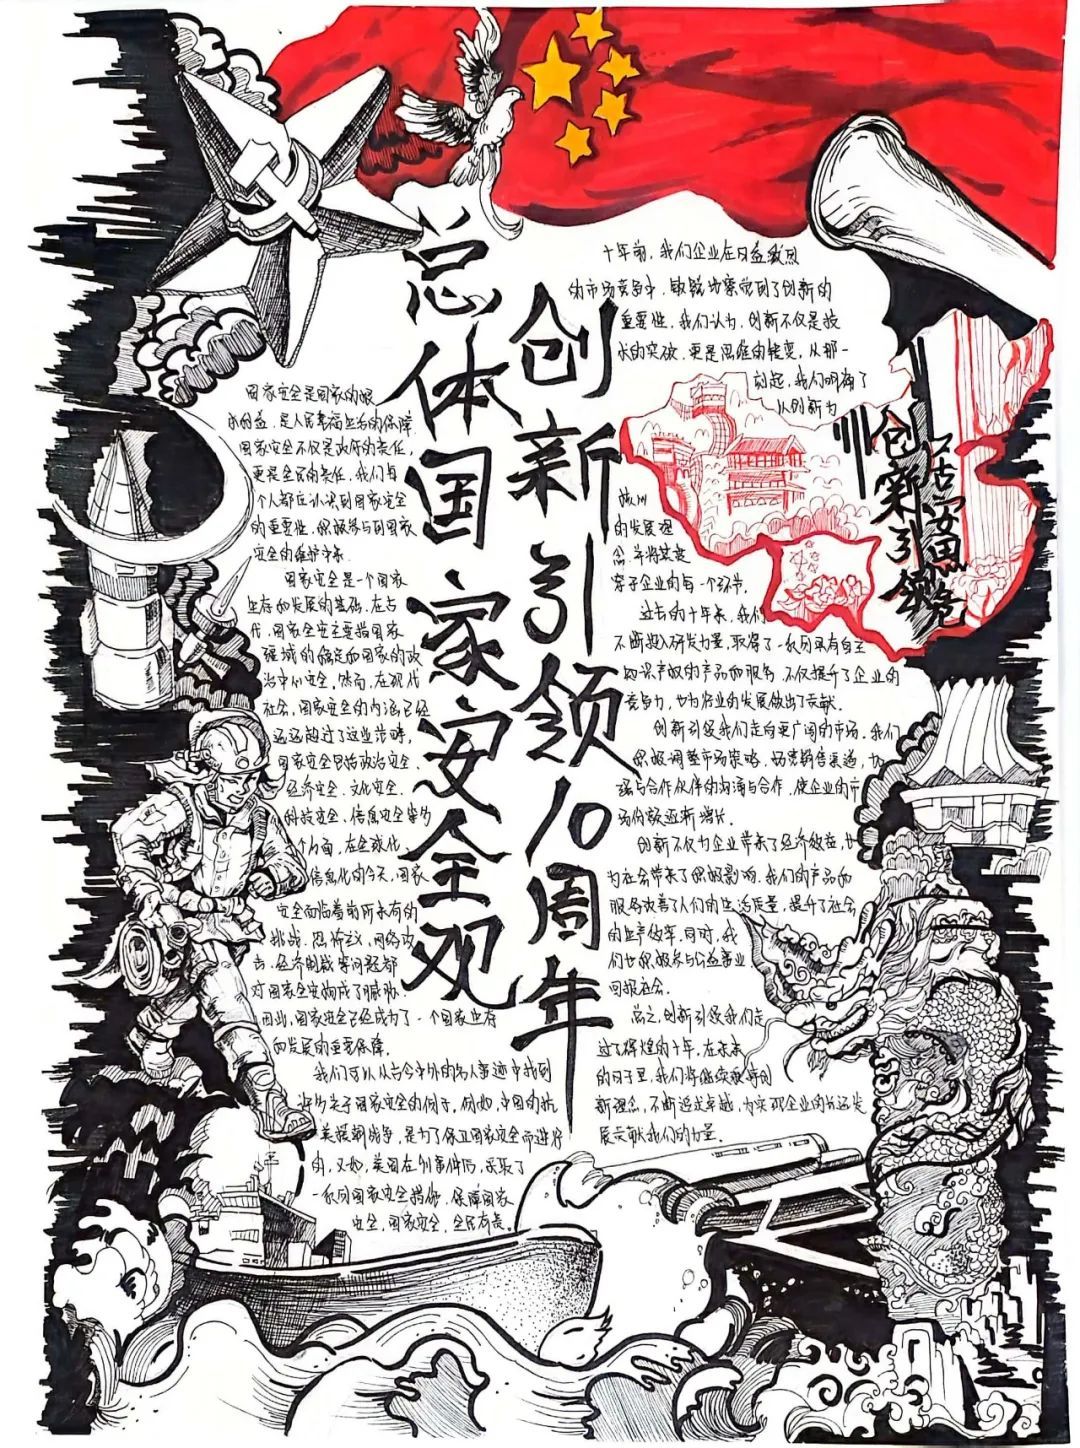 总体国家安全观
创新引领10周年
国家安全是国家的根
本利益,是人民幸福生活的保障。
国家安全不仅是政府的责任,
更是全民的责任。我们每
个人都应认识到国家安全
的重要性,积极参与到国家
安全的维护中来。
国家安全是一个国家
生存和发展的基础。在古
代,国家安全主要指国家
疆域的稳定和国家的政
治中心安全。然而,在现代
社会,国家安全的内涵已经
远远超过了这些范畴,
国家安全包括政治安全、
经济安全、文化安全、
科技安全、信息安全等多
个方面,在全球化、
信息化的今天,国家
安全面临着前所未有的
挑战,恐怖主义、网络攻
击、经济制裁等问题都
对国家安全构成了威胁。
因此,国家安全已经成为了一个国家生存
和发展的重要保障。
我们可以从古今中外的名人事迹中找到
许多关于国家安全的例子。例如,中国的抗
美援朝战争,是为了保卫国家安全而进行
的,又如,美国在911事件后,采取了
一系列国家安全措施,保障国家
安全。国家安全,全民有责。
十年前,我们企业在日益激烈
的市场竞争中,敏锐地察觉到了创新的
重要性。我们认为,创新不仅是技
术的突破,更是思维的转变。从那一
刻起,我们明确了
以创新为
的发展理
念,并将其贯
穿于企业的每一个环节。
过去的十年来,我们
不断投入研发力量,取得了一系列具有自主
知识产权的产品和服务,不仅提升了企业的
竞争力,也为行业的发展做出了贡献。
创新引领我们走向更广阔的市场。我们
积极调整市场策略,拓宽销售渠道,加
强与合作伙伴的沟通与合作,使企业的市
场份额逐渐增长。
创新不仅为企业带来了经济效益,也
为社会带来了积极影响。我们的产品和
服务改善了人们的生活质量,提升了社会
的生产效率。同时,我
们也积极参与公益事业
回报社会。
总之,创新引领我们走
过了辉煌的十年。在未来
的日子里,我们将继续秉持创
新理念,不断追求卓越,为实现企业的长远发
展贡献我们的力量。
创新引领
居安思危